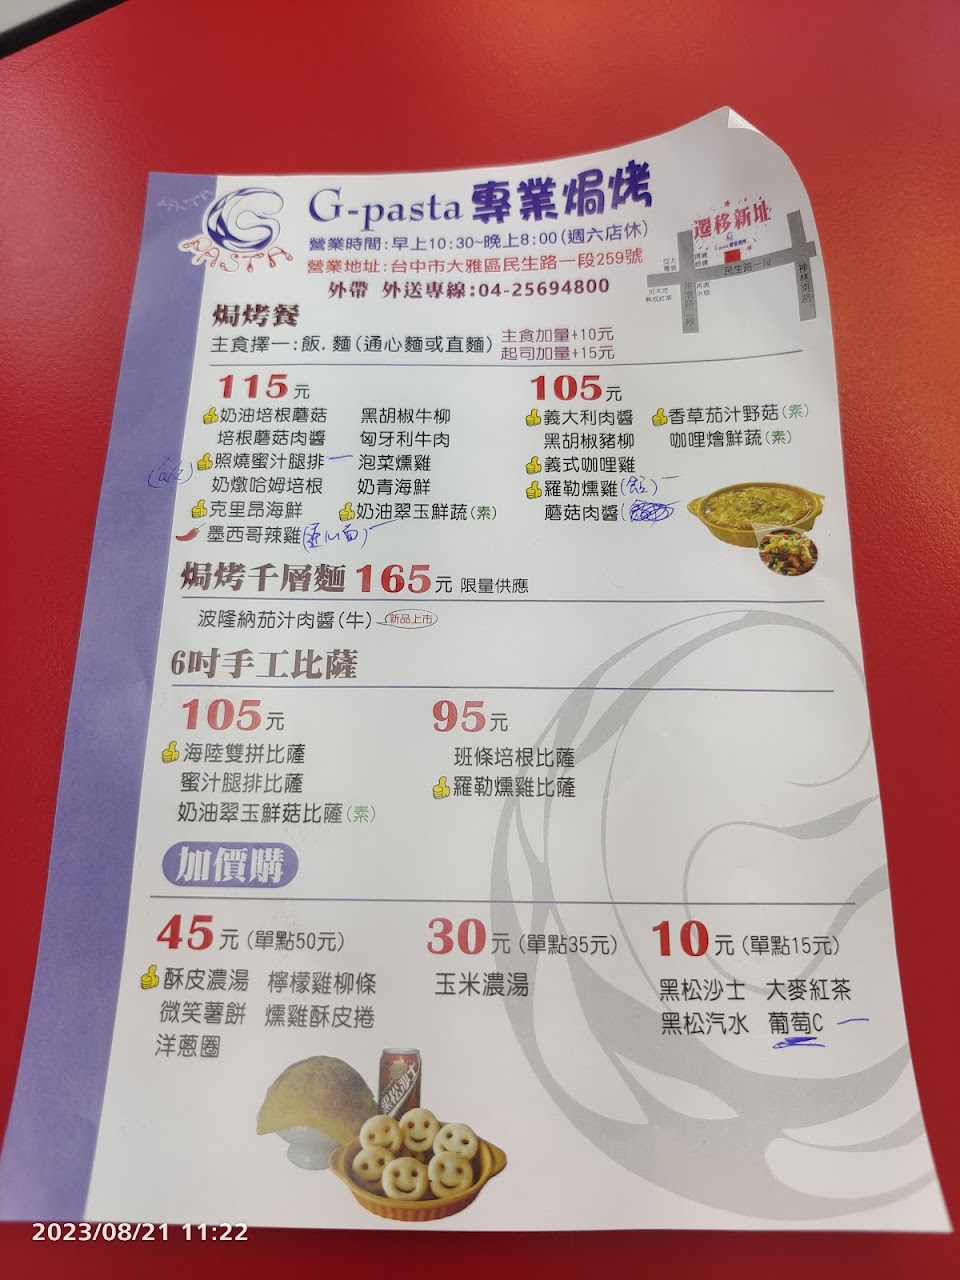 G-pasta 專業焗烤
PASTA
營業時間:早上10:30~晚上8:00(週六店休)
營業地址:台中市大雅區民生路一段259號
外帶 外送專線:04-25694800
遷移新址
G-pasta 專業焗烤
民生路一段
雅環路一段
神林南路
焗烤餐
主食擇一:飯.麵(通心麵或直麵)
主食加量+10元
起司加量+15元
115元
奶油培根蘑菇 黑胡椒牛柳
培根蘑菇肉醬 匈牙利牛肉
(飯) 照燒蜜汁腿排 一 泡菜燻雞
奶燉哈姆培根 奶青海鮮
克里昂海鮮 奶油翠玉鮮蔬(素)
墨西哥辣雞
105元
義大利肉醬 香草茄汁野菇(素)
黑胡椒豬柳 咖哩燴鮮蔬(素)
義式咖哩雞
羅勒燻雞(飯)一
蘑菇肉醬
焗烤千層麵 165元 限量供應
波隆納茄汁肉醬(牛) 新品上市
6吋手工比薩
105元
海陸雙拼比薩
蜜汁腿排比薩
奶油翠玉鮮菇比薩(素)
95元
班條培根比薩
羅勒燻雞比薩
加價購
45元(單點50元)
酥皮濃湯 檸檬雞柳條
微笑薯餅 燻雞酥皮捲
洋蔥圈
30元(單點35元)
玉米濃湯
10元(單點15元)
黑松沙士 大麥紅茶
黑松汽水 葡萄C 一
黑松沙士
2023/08/21 11:22